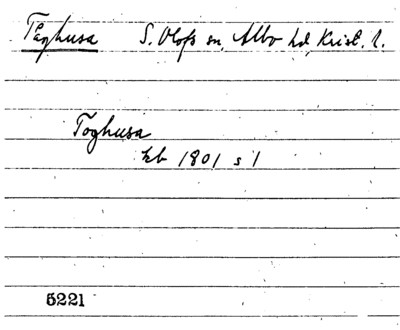 Tåghusa S. Olofs sn, Albo hd, Krist. l.
Toghusa
kb 1801 s 1
5221